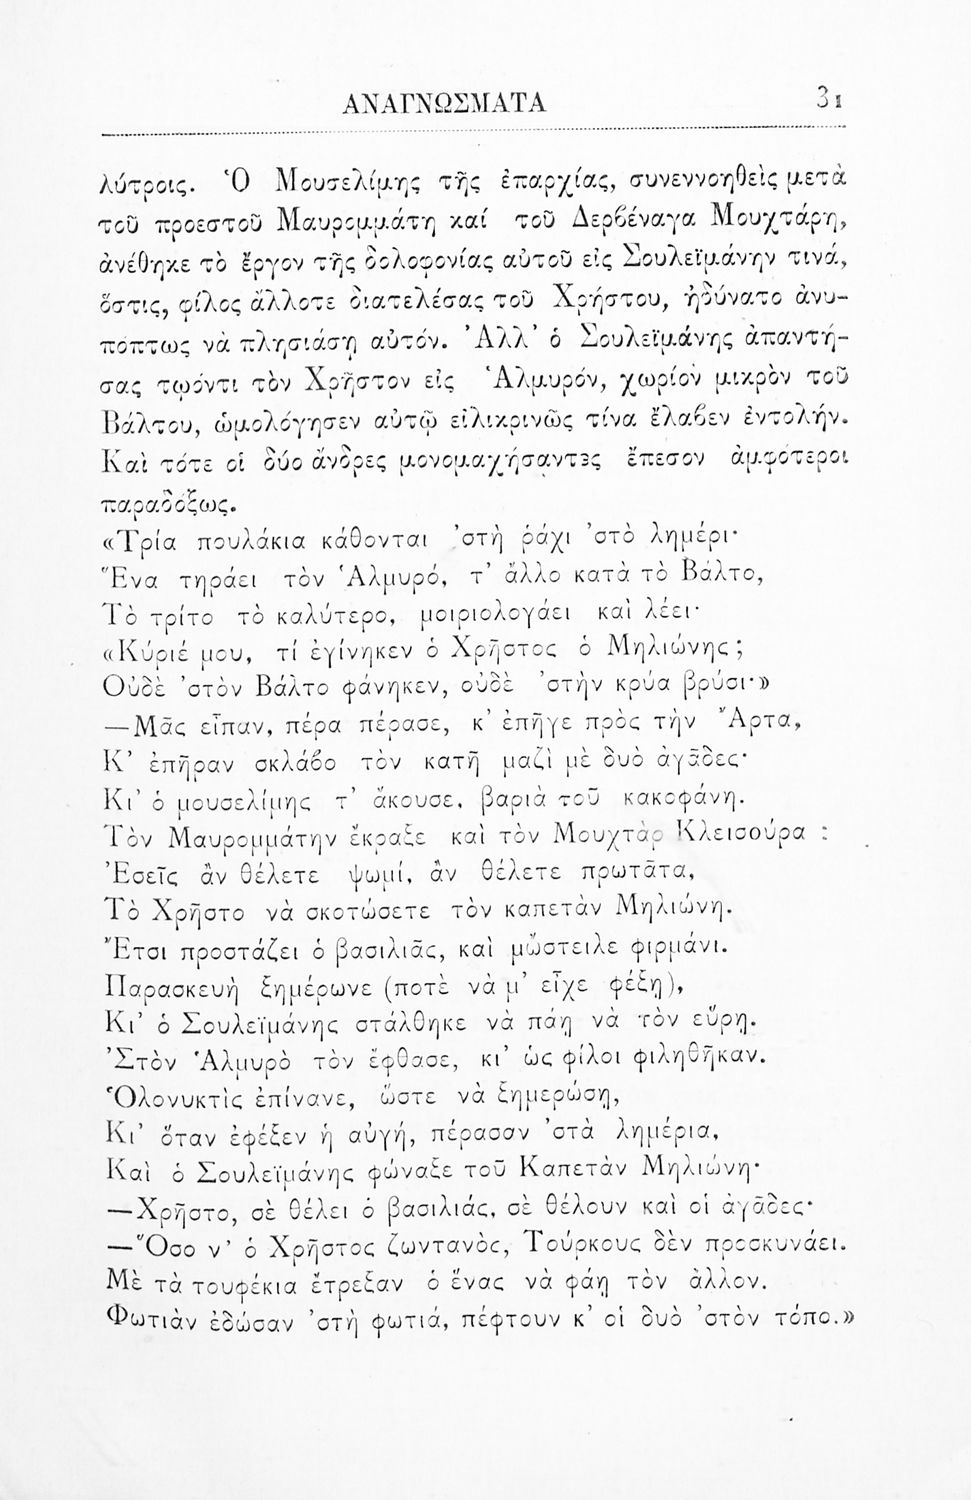 ΑΝΑΓΝΩΣΜΑΤΑ 31
λύτροις. Ὁ Μουσελίμης τῆς ἐπαρχίας, συνεννοηθεὶς μετὰ
τοῦ προεστοῦ Μαυρομμάτη καί τοῦ Δερβέναγα Μουχτάρη,
ἀνέθηκε τὸ ἔργον τῆς δολοφονίας αὐτοῦ εἰς Σουλεϊμάνην τινά,
ὅστις, φίλος ἄλλοτε διατελέσας τοῦ Χρήστου, ἠδύνατο ἀνυ-
πόπτως νὰ πλησιάσῃ αὐτόν. Ἀλλ' ὁ Σουλεϊμάνης ἀπαντή-
σας τῳόντι τὸν Χρῆστον εἰς Ἁλμυρόν, χωρίον μικρὸν τοῦ
Βάλτου, ὡμολόγησεν αὐτῷ εἰλικρινῶς τίνα ἔλαβεν ἐντολήν.
Καὶ τότε οἱ δύο ἄνδρες μονομαχήσαντες ἔπεσον ἀμφότεροι
παραδόξως.
«Τρία πουλάκια κάθονται 'στὴ ῥάχι 'στὸ λημέρι·
Ἕνα τηράει τὸν Ἁλμυρό, τ' ἄλλο κατὰ τὸ Βάλτο,
Τὸ τρίτο τὸ καλύτερο, μοιριολογάει καὶ λέει·
«Κύριέ μου, τί ἐγίνηκεν ὁ Χρῆστος ὁ Μηλιώνης;
Οὐδὲ 'στὸν Βάλτο φάνηκεν, οὐδὲ 'στὴν κρύα βρύσι·»
—Μᾶς εἶπαν, πέρα πέρασε, κ' ἐπῆγε πρὸς τὴν Ἄρτα,
Κ' ἐπῆραν σκλάβο τὸν κατῆ μαζὶ μὲ δυὸ ἀγᾶδες·
Κι' ὁ μουσελίμης τ' ἄκουσε, βαριὰ τοῦ κακοφάνη.
Τὸν Μαυρομμάτην ἔκραξε καὶ τὸν Μουχτὰρ Κλεισούρα :
Ἐσεῖς ἂν θέλετε ψωμί, ἂν θέλετε πρωτᾶτα,
Τὸ Χρῆστο νὰ σκοτώσετε τὸν καπετὰν Μηλιώνη.
Ἔτσι προστάζει ὁ βασιλιᾶς, καὶ μὤστειλε φιρμάνι.
Παρασκευὴ ξημέρωνε (ποτὲ νὰ μ' εἶχε φέξῃ),
Κι' ὁ Σουλεϊμάνης στάλθηκε νὰ πάῃ νὰ τὸν εὕρῃ.
'Στὸν Ἁλμυρὸ τὸν ἔφθασε, κι' ὡς φίλοι φιληθῆκαν.
Ὁλονυκτὶς ἐπίνανε, ὥστε νὰ ξημερώσῃ,
Κι' ὅταν ἐφέξεν ἡ αὐγή, πέρασαν 'στὰ λημέρια,
Καὶ ὁ Σουλεϊμάνης φώναξε τοῦ Καπετὰν Μηλιώνη·
—Χρῆστο, σὲ θέλει ὁ βασιλιάς, σὲ θέλουν καὶ οἱ ἀγᾶδες·
—Ὅσο ν' ὁ Χρῆστος ζωντανὸς, Τούρκους δὲν προσκυνάει.
Μὲ τὰ τουφέκια ἔτρεξαν ὁ ἕνας νὰ φάῃ τὸν ἄλλον.
Φωτιὰν ἐδώσαν 'στὴ φωτιά, πέφτουν κ' οἱ δυὸ 'στὸν τόπο.»